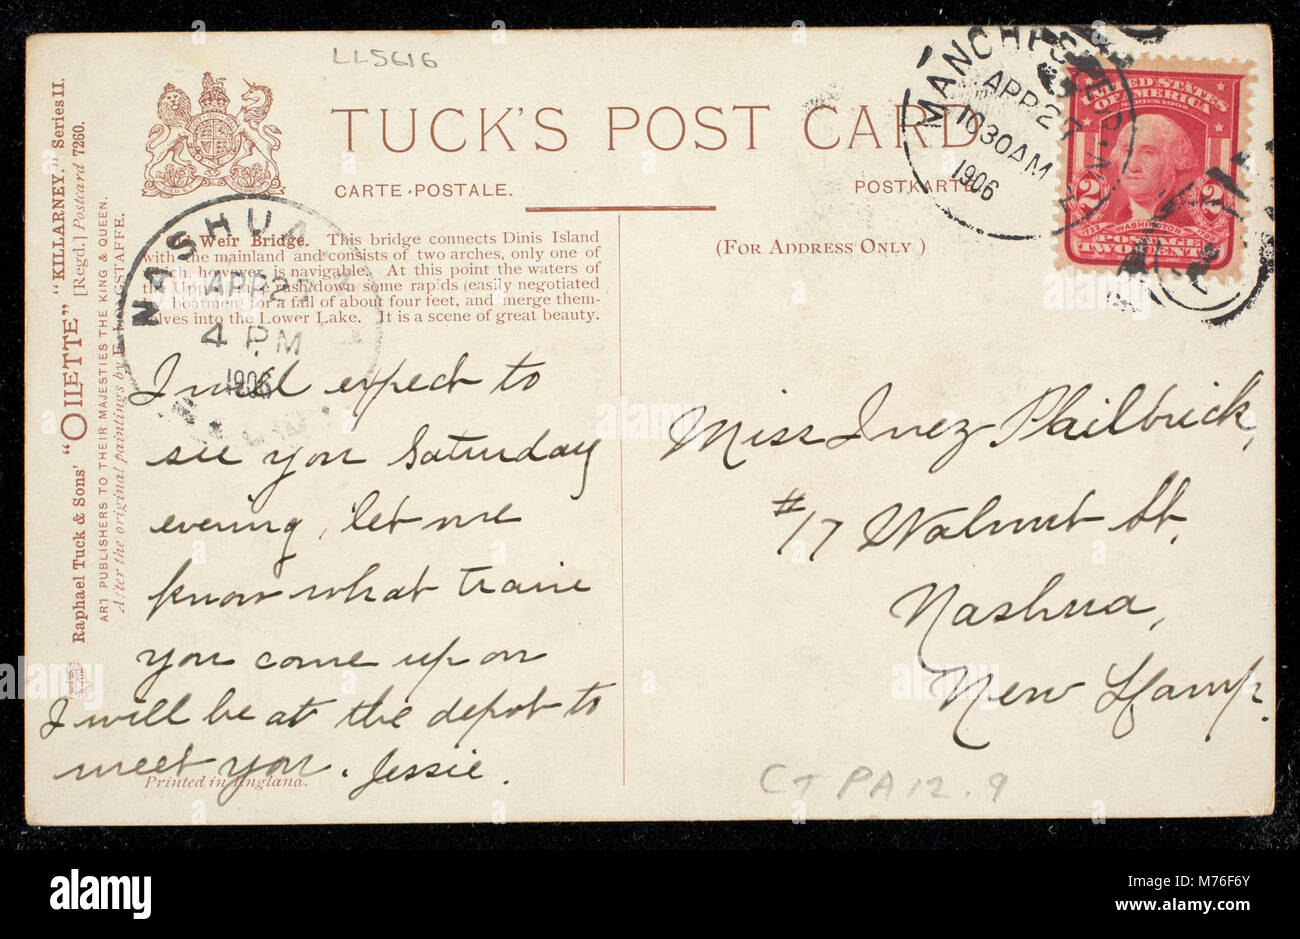 LL5616
TUCK'S POST CARD
CARTE·POSTALE.
POSTKARTE
(FOR ADDRESS ONLY)
MANCHES
APR 27
1030AM
1906
N.H.
UNITED STATES
OF AMERICA
SERIES 1902
2 2
WASHINGTON
POSTAGE
TWO CENTS
Raphael Tuck & Sons' "OILETTE" "KILLARNEY." Series II.
[Regd.] Postcard 7260.
ART PUBLISHERS TO THEIR MAJESTIES THE KING & QUEEN.
After the original paintings by F. LONGSTAFFE.
Weir Bridge. This bridge connects Dinis Island
with the mainland and consists of two arches, only one of
which, however, is navigable. At this point the waters of
the Upper Lake dash down some rapids (easily negotiated
boatmen) for a fall of about four feet, and merge them-
selves into the Lower Lake. It is a scene of great beauty.
NASHUA
APR 27
4 PM
1906
I will expect to
see you Saturday
evening, let me
know what train
you come up on
I will be at the depot to
meet you. Jessie.
Printed in England.
Miss Inez Philbrick,
#17 Walnut St.
Nashua,
New Hamp.
CTPA12.9
alamy
alamy
Image ID: M76F6Y
www.alamy.com